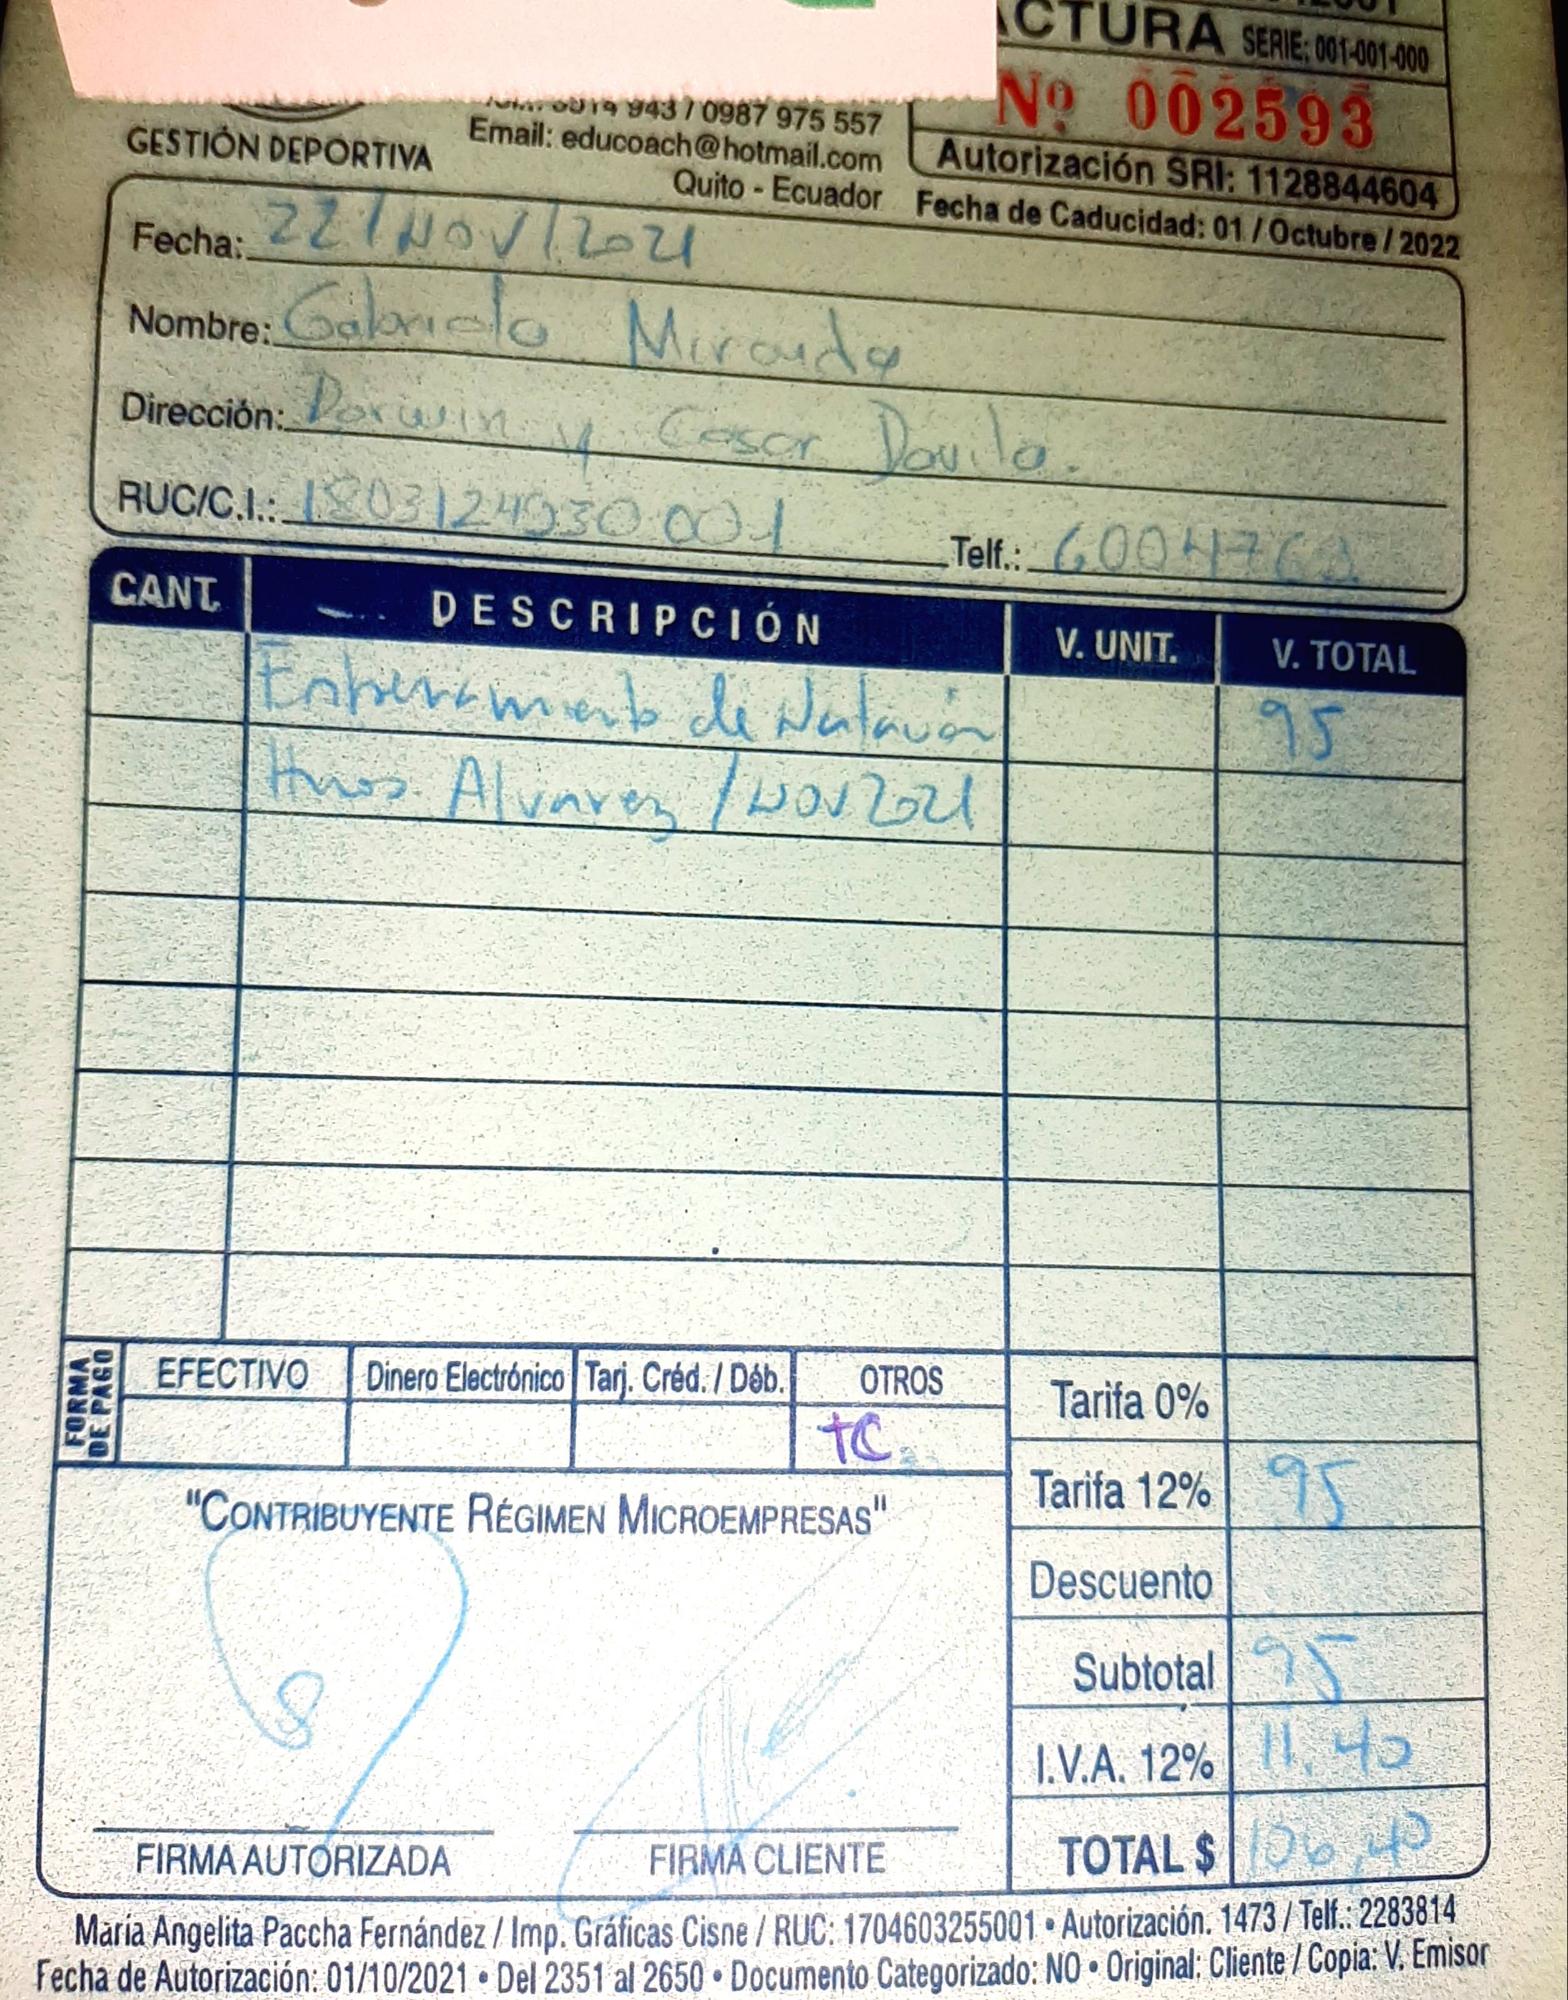 ACTURA SERIE: 001-001-000
Nº 002593
943 / 0987 975 557
GESTIÓN DEPORTIVA
Email: educoach@hotmail.com
Autorización SRI: 1128844604
Quito - Ecuador
Fecha de Caducidad: 01 / Octubre / 2022
Fecha: 22/NOV/2021
Nombre: Gabriela Miranda
Dirección: Darwin y Cesar Davila.
RUC/C.I.: 1803124930001 Telf.:
CANT. DESCRIPCIÓN V. UNIT. V. TOTAL
Entrenamiento de Natación 95
Hnos. Alvarez / NOV 2021
FORMA DE PAGO
EFECTIVO Dinero Electrónico Tarj. Créd. / Déb. OTROS
TC
Tarifa 0%
Tarifa 12% 95
"CONTRIBUYENTE RÉGIMEN MICROEMPRESAS"
Descuento
Subtotal 95
I.V.A. 12% 11.40
TOTAL $ 106,40
FIRMA AUTORIZADA FIRMA CLIENTE
María Angelita Paccha Fernández / Imp. Gráficas Cisne / RUC: 1704603255001 • Autorización. 1473 / Telf.: 2283814
Fecha de Autorización: 01/10/2021 • Del 2351 al 2650 • Documento Categorizado: NO • Original: Cliente / Copia: V. Emisor